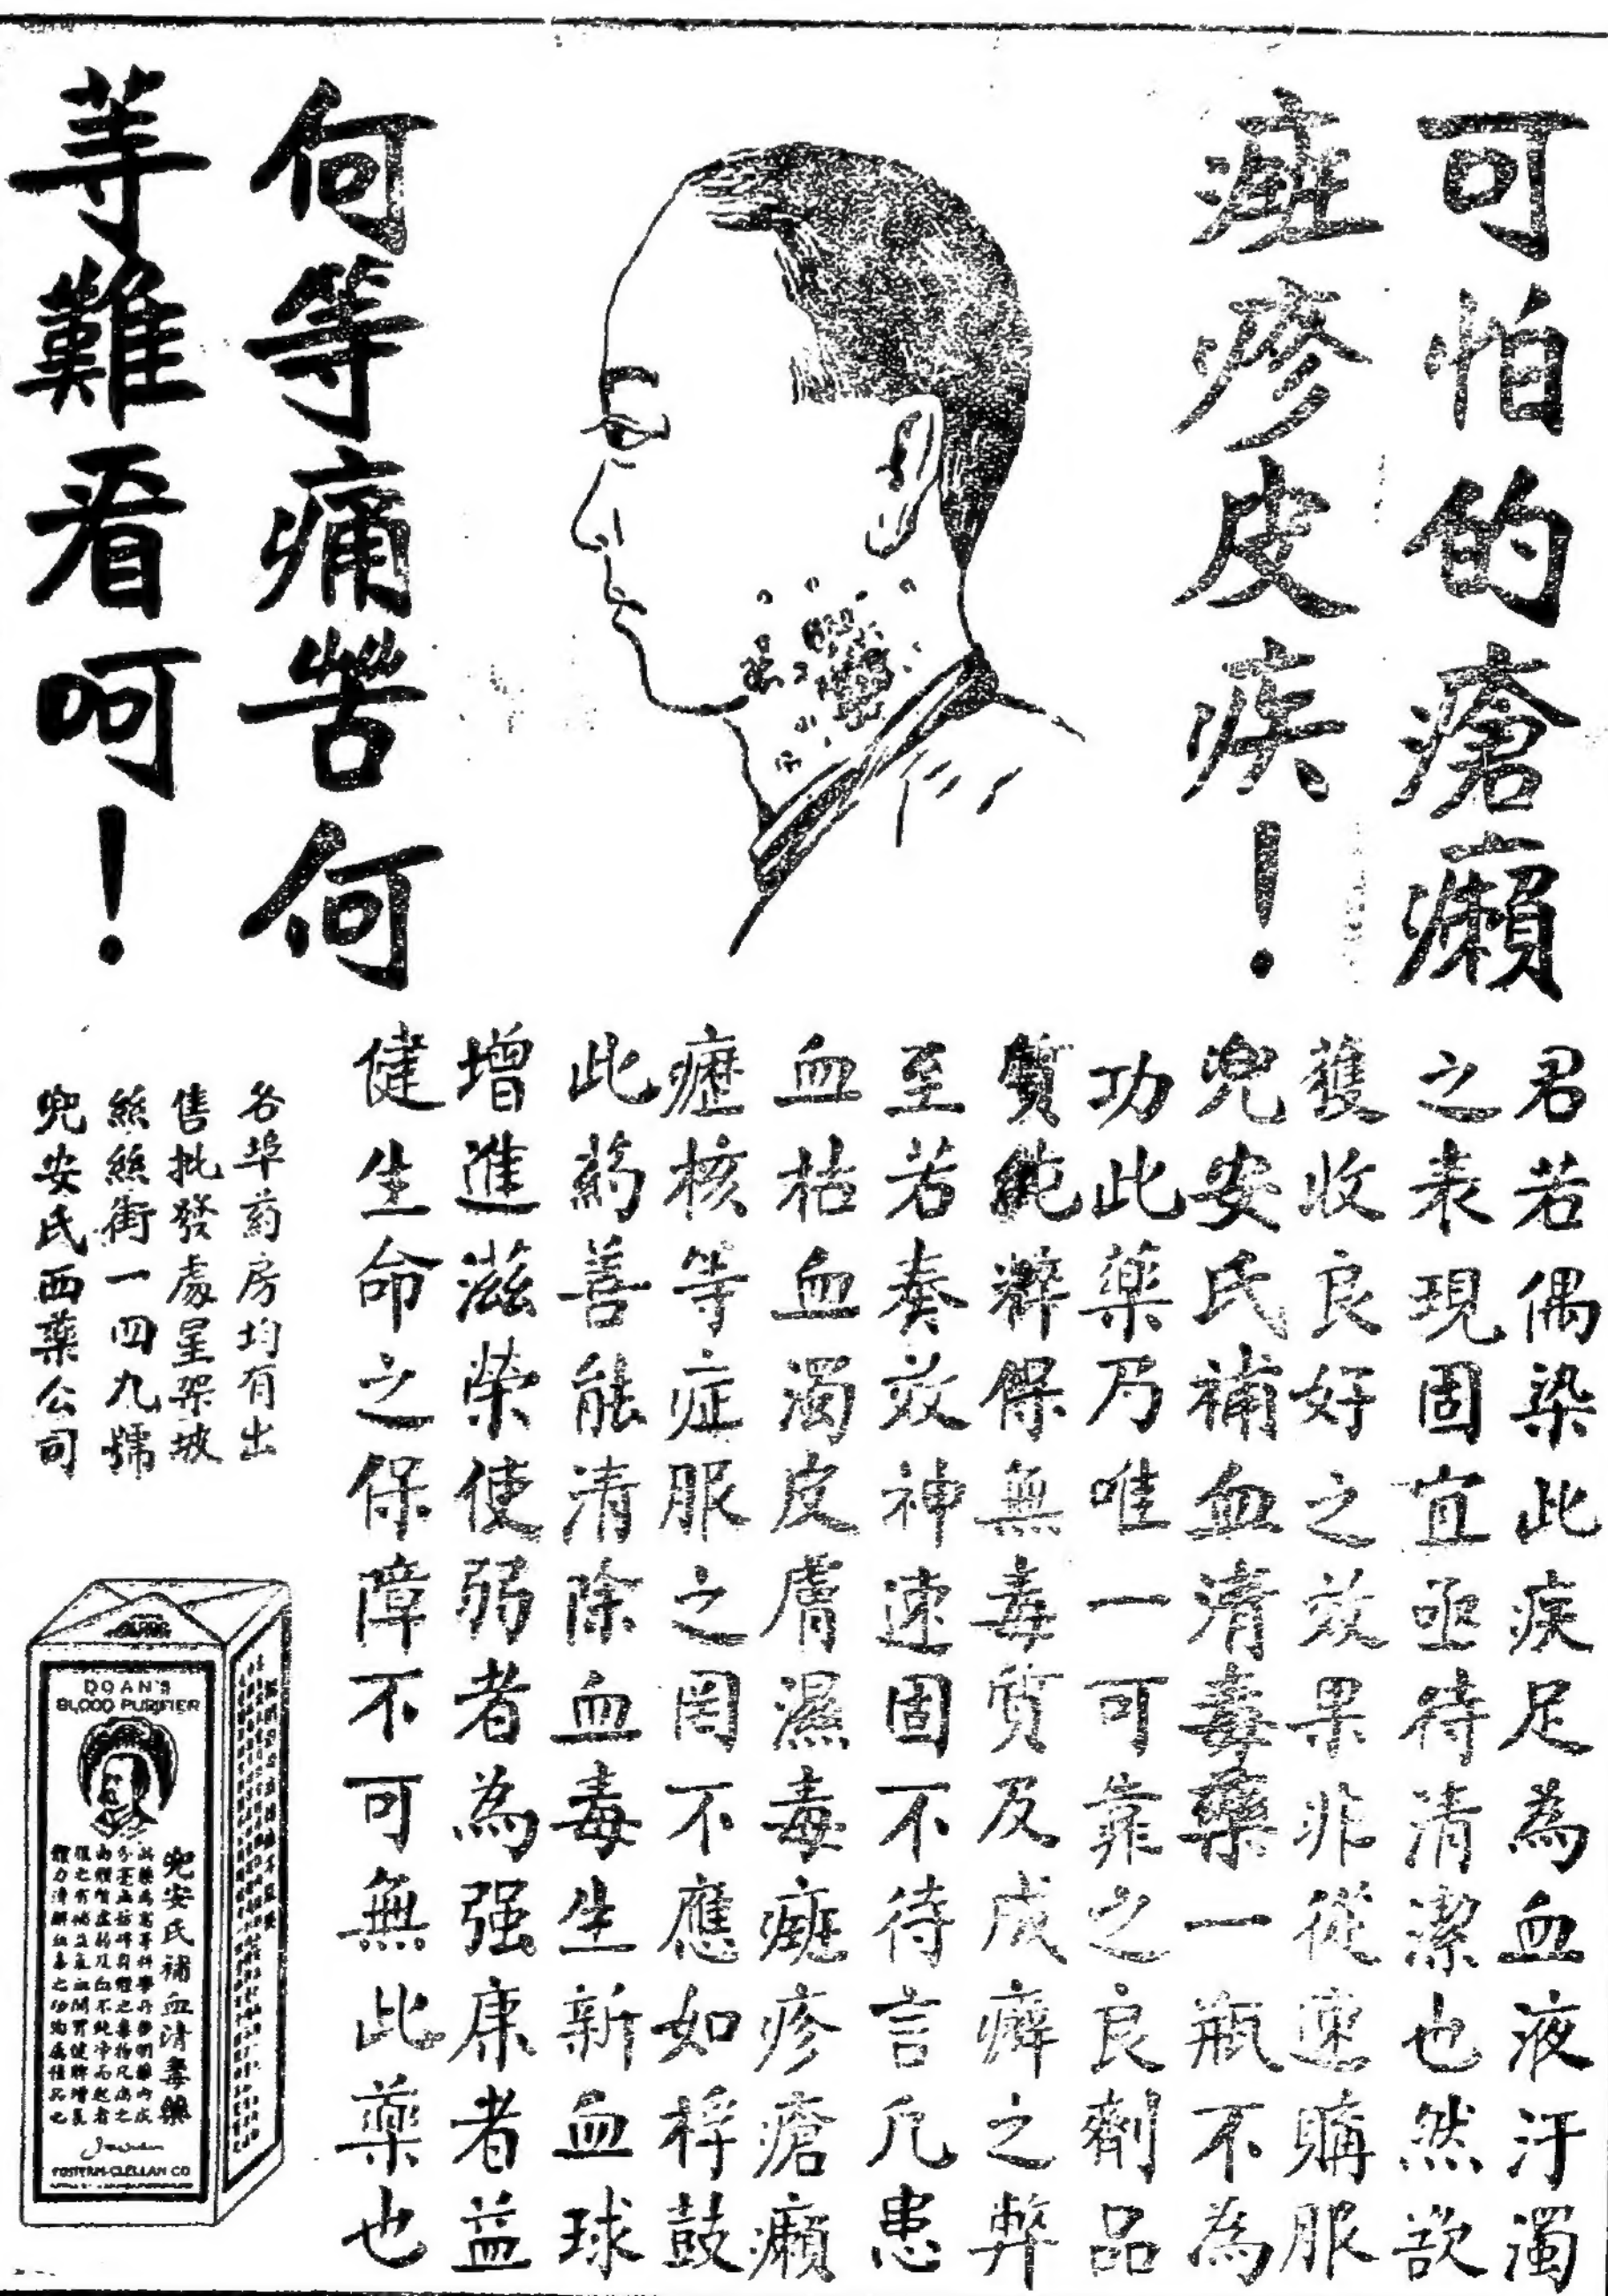 可怕的瘡癩
痱疹皮疾!
何等痛苦何
等難看呵!
君若偶染此疾足為血液汙濁
之表現固宜亟待清潔也然欲
獲收良好之效果非從速購服
兜安氏補血清毒藥一瓶不為
功此藥乃唯一可靠之良劑品
質純粹保無毒質及成癖之弊
至若奏效神速固不待言凡患
血枯血濁皮膚濕毒痱疹瘡癩
癧核等症服之罔不應如桴鼓
此葯善能清除血毒生新血球
增進滋榮使弱者為强康者益
健生命之保障不可無此藥也
各埠葯房均有出
售批發處星架坡
絲絲街一四九號
兜安氏西藥公司
DOAN'S
BLOOD PURIFIER
兜安氏補血清毒藥
FOSTER M-CLELLAN CO